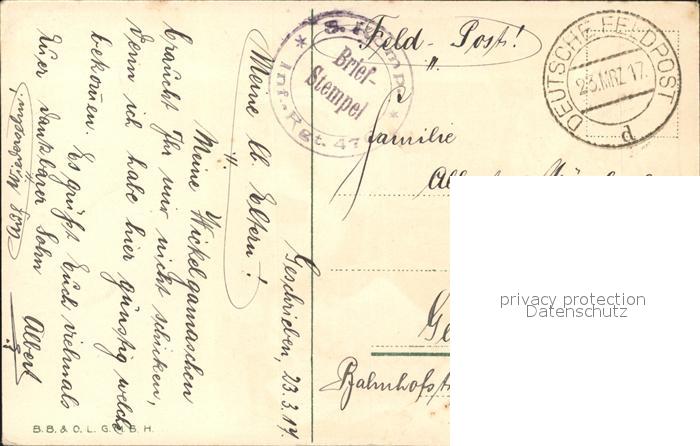 Geschrieben, 23.3.17.
Meine lb. Eltern!
Meine Wickelgamaschen
braucht Ihr mir nicht schicken,
denn ich habe hier günstig welche
bekommen. Es grüßt Euch vielmals
Euer dankbarer Sohn
Albert
B.B. & O. L. G. M. B. H.
Brief-
Stempel
Inf.-Rgt. 47
Feld-Post!
DEUTSCHE FELDPOST
23.MRZ.17.
d
Familie
Bahnhofst
privacy protection
Datenschutz